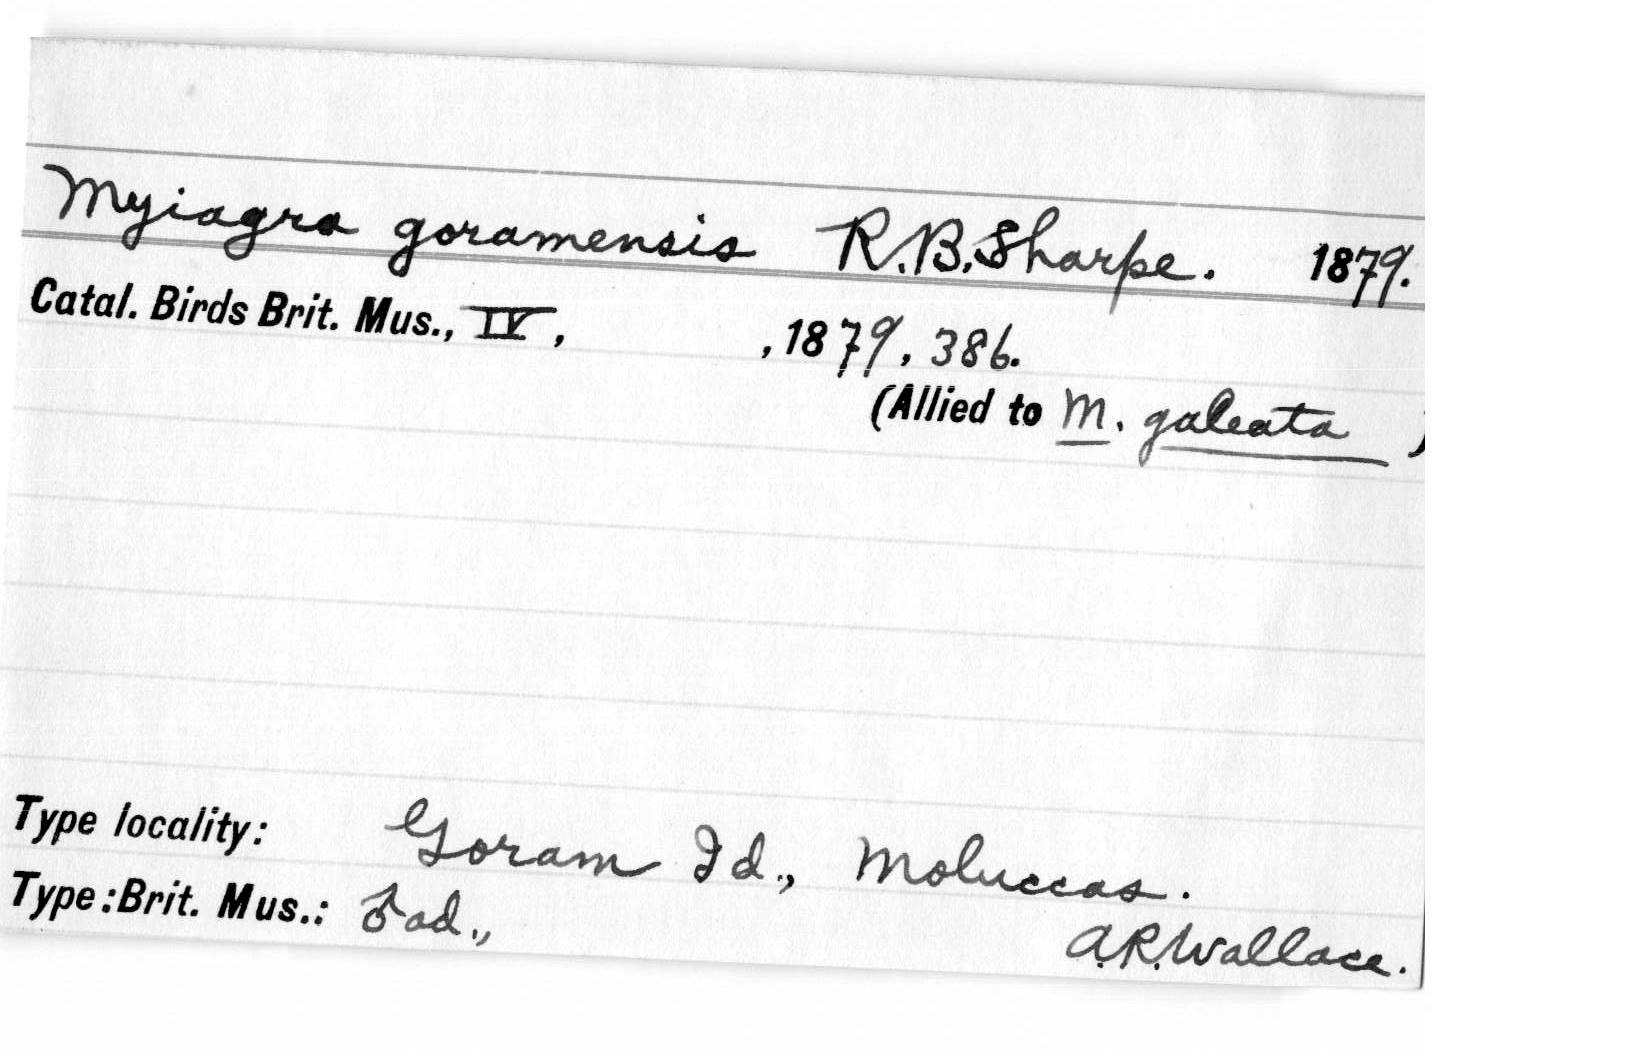 Myiagra goramensis R.B. Sharpe. 1879.
Catal. Birds Brit. Mus., IV, , 1879, 386.
(Allied to M. galeata )
Type locality: Goram Id., Moluccas.
Type: Brit. Mus.: ♂ ad., A.R. Wallace.